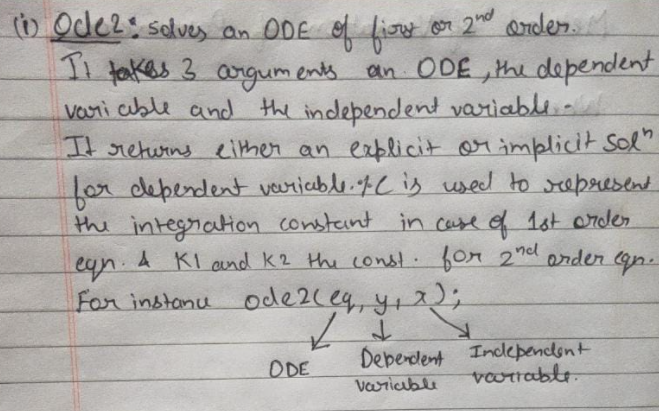 (i) Ode2: solves an ODE of first or 2nd order.
It takes 3 arguments an ODE, the dependent
variable and the independent variable.
It returns either an explicit or implicit soln
for dependent variable. %C is used to represent
the integration constant in case of 1st order
eqn. & K1 and K2 the const. for 2nd order eqn.
For instance ode2(eq, y, x);
ODE Dependent Independent
variable variable.